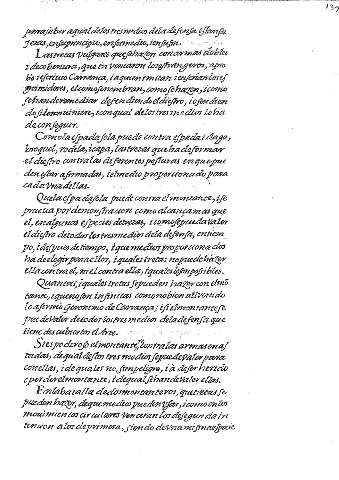 para saber a qual de los tres medios de la defensa estan sujetas, en su principio, en su medio, i en su fin.
Las tretas vulgares que se hazen con armas dobles
i de que
escrivio Carrança, i a quien imitan i enseñan los
esgrimidores, el como se nombran, como se hazen, i como
se han de remediar defendiendo el diestro, i ofendien
do si le conviniere, i con qual de los tres medios lo ha
de conseguir.
Como la espada sola puede contra espada i daga,
broquel, rodela, i capa, las tretas que ha de formar
el diestro contra las diferentes posturas en que pue
den estar afirmadas, i el medio proporcionado para
cada una dellas.
Que la espada sola puede contra el montante, i se
prueva por demonstracion como al cuerpo mas que
el, en algunas especies de tretas, i como se pueda valer
el diestro de todos los tres medios de la defensa, en tiem
po, i despues de tiempo, i que medios proporcionados
ha de elegir para ello, i quales tretas no puede hazer
ella contra el, ni el contra ella, i quales son posibles.
Quantas, i quales tretas se pueden hazer con el mō
tante, i que no son infinitas como no bien advertido
lo afirmo Geronimo de Carrança; i si el montante se
puede valer de todos los tres medios de la defensa que
tiene descubiertos el Arte.
Si es poderoso el montante, contra las armas enas
tadas, de qual destos tres medios se puede valer para
con ellas, i de quales no, sin peligro, i a de ser herido
o perder el montante, i de qual se han de valer ellas.
En la batalla de dos montanteros, que tretas se
pueden hazer, de que medios pueden usar, i como en los
movimientos circulares venceran los de segunda in
tencion a los de primera, siendo de una misma especie